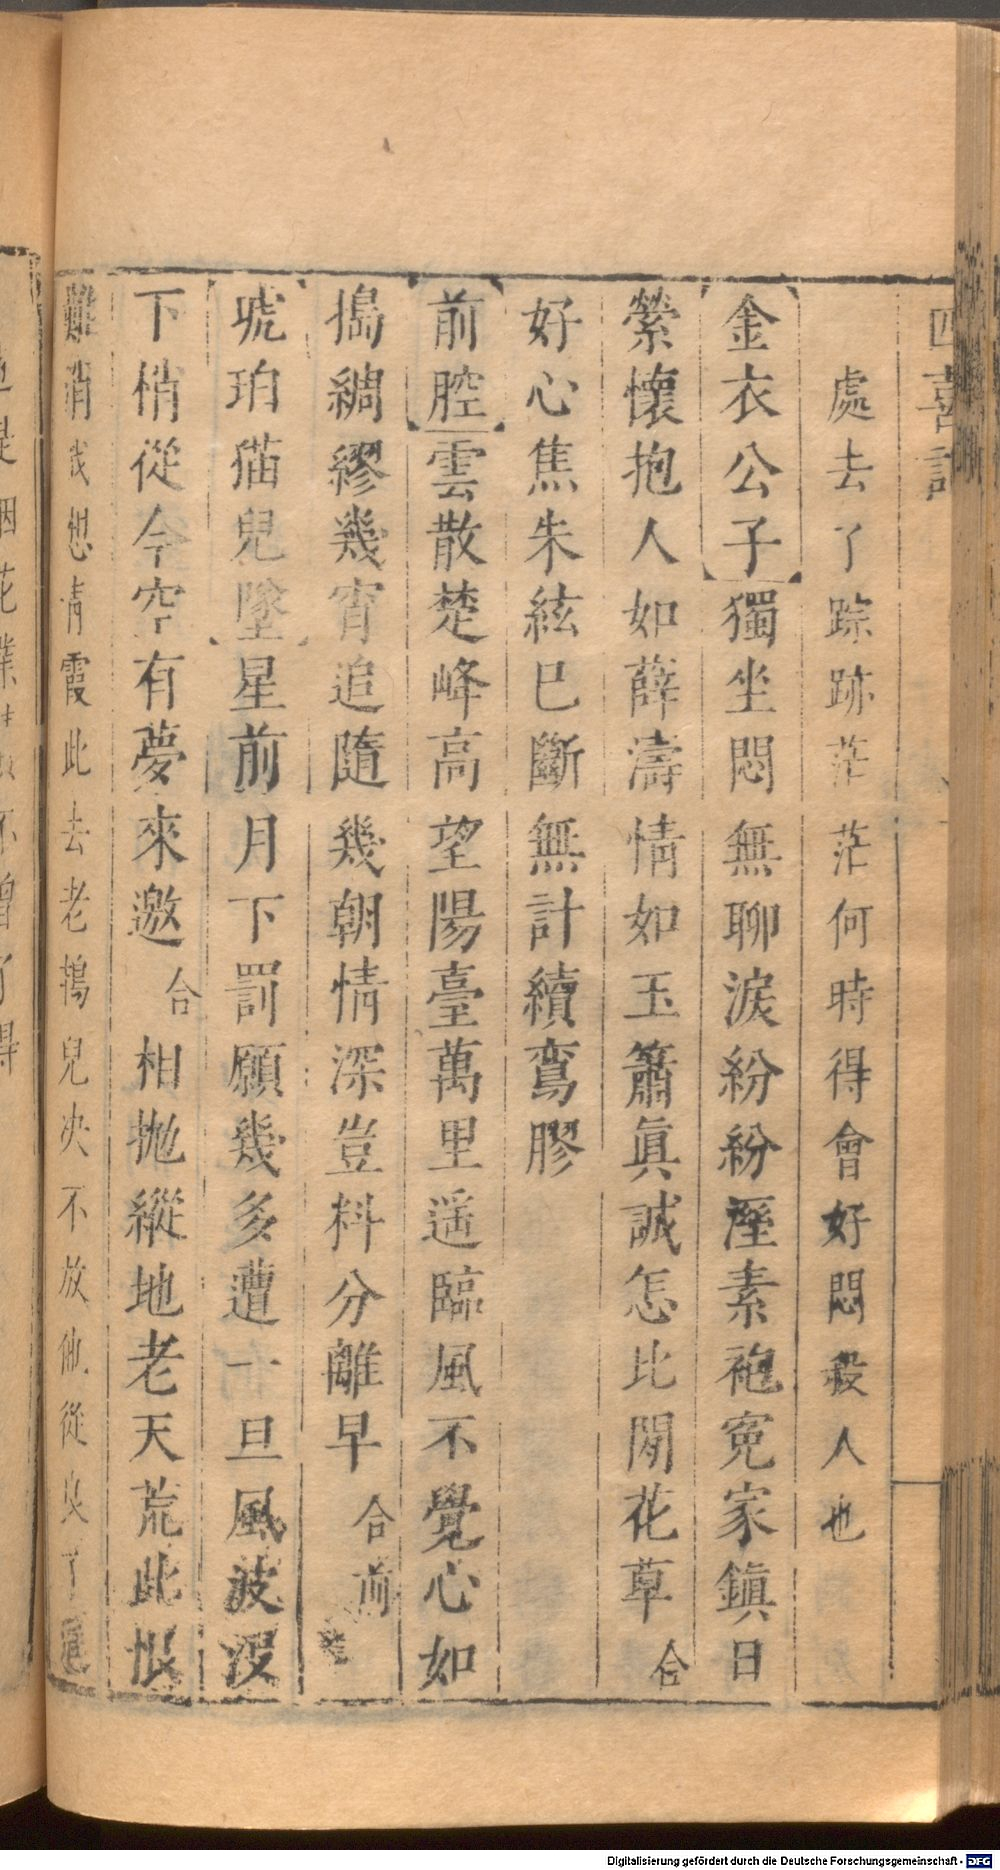 四喜記
處去了踪跡茫茫何時得會好悶殺人也
金衣公子獨坐悶無聊淚紛紛溼素袍寃家鎭日
縈懷抱人如薛濤情如玉簫眞誠怎比閒花草合
好心焦朱絃巳斷無計續鸞膠
前腔雲散楚峰高望陽臺萬里遥臨風不覺心如
搗綢繆幾宵追隨幾朝情深豈料分離早合前
琥珀猫兒墜星前月下罰願幾多遭一旦風波没
下梢從今空有夢來邀合相抛縱地老天荒此恨
難消我想青霞此去老搗兒决不放他從良了
Digitalisierung gefördert durch die Deutsche Forschungsgemeinschaft - DFG